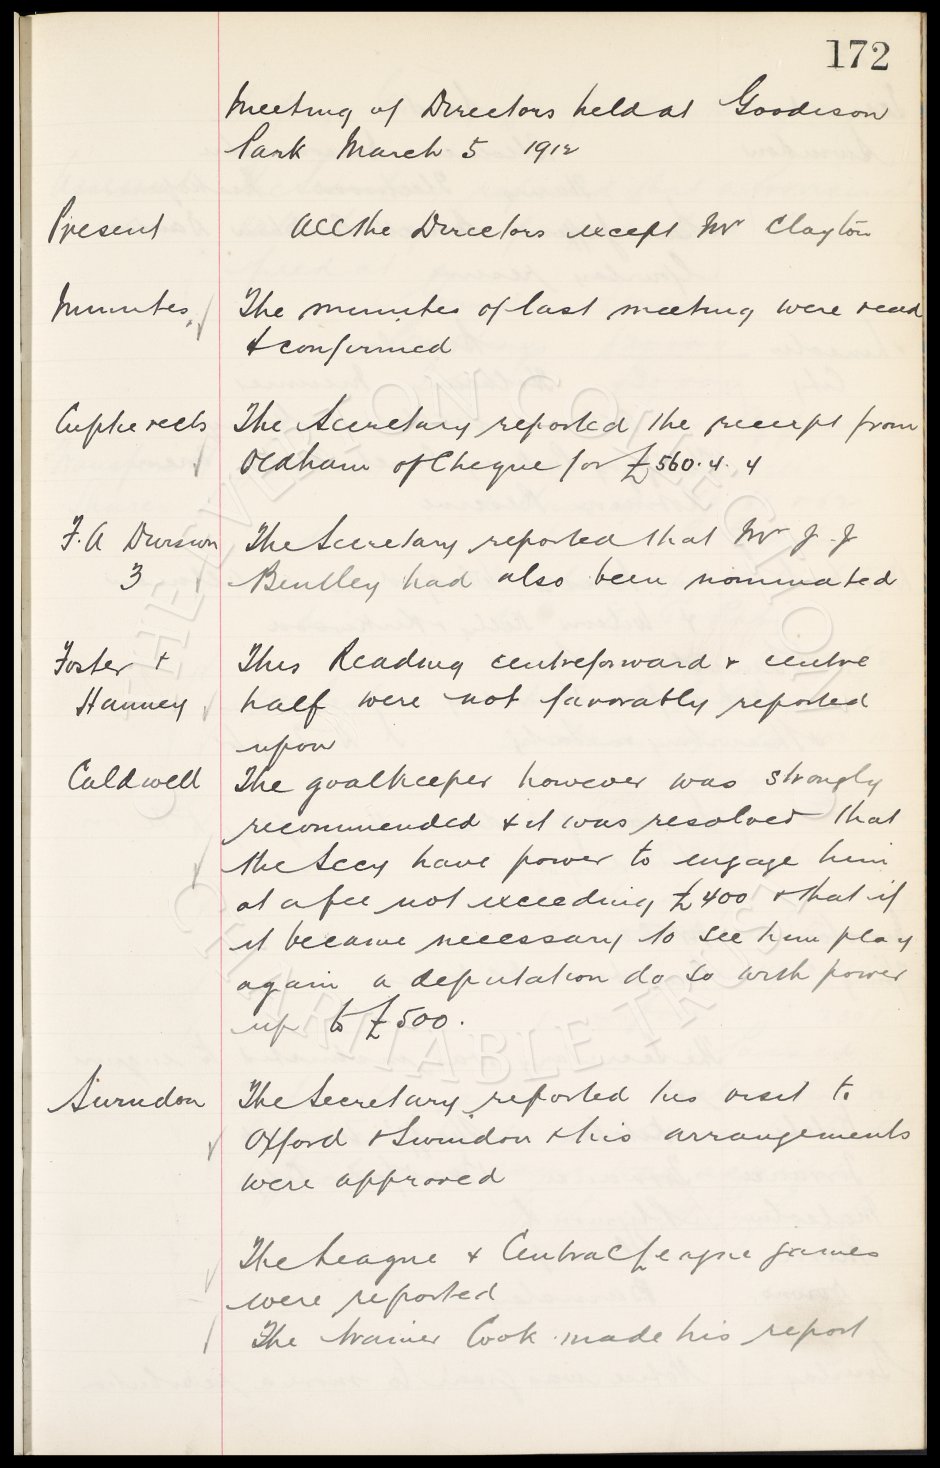 172
Meeting of Directors held at Goodison
Park March 5 1912
Present All the Directors except Mr Clayton
Minutes. The minutes of last meeting were read
& confirmed
Cuptie rects The Secretary reported the receipt from
Oldham of Cheque for £560.4.4
F.A Division The Secretary reported that Mr J.J
3 Bentley had also been nominated
Foster & This Reading centreforward & centre
Hanney half were not favorably reported
upon
Caldwell The goalkeeper however was strongly
recommended & it was resolved that
the Secy have power to engage him
at a fee not exceeding £400 & that if
it became necessary to see him play
again a deputation do so with power
up to £500.
Swindon The Secretary reported his visit to
Oxford & Swindon & his arrangements
were approved
The League & Central League games
were reported
The trainer Cook made his report
THE EVERTON COLLECTION
CHARITABLE TRUST